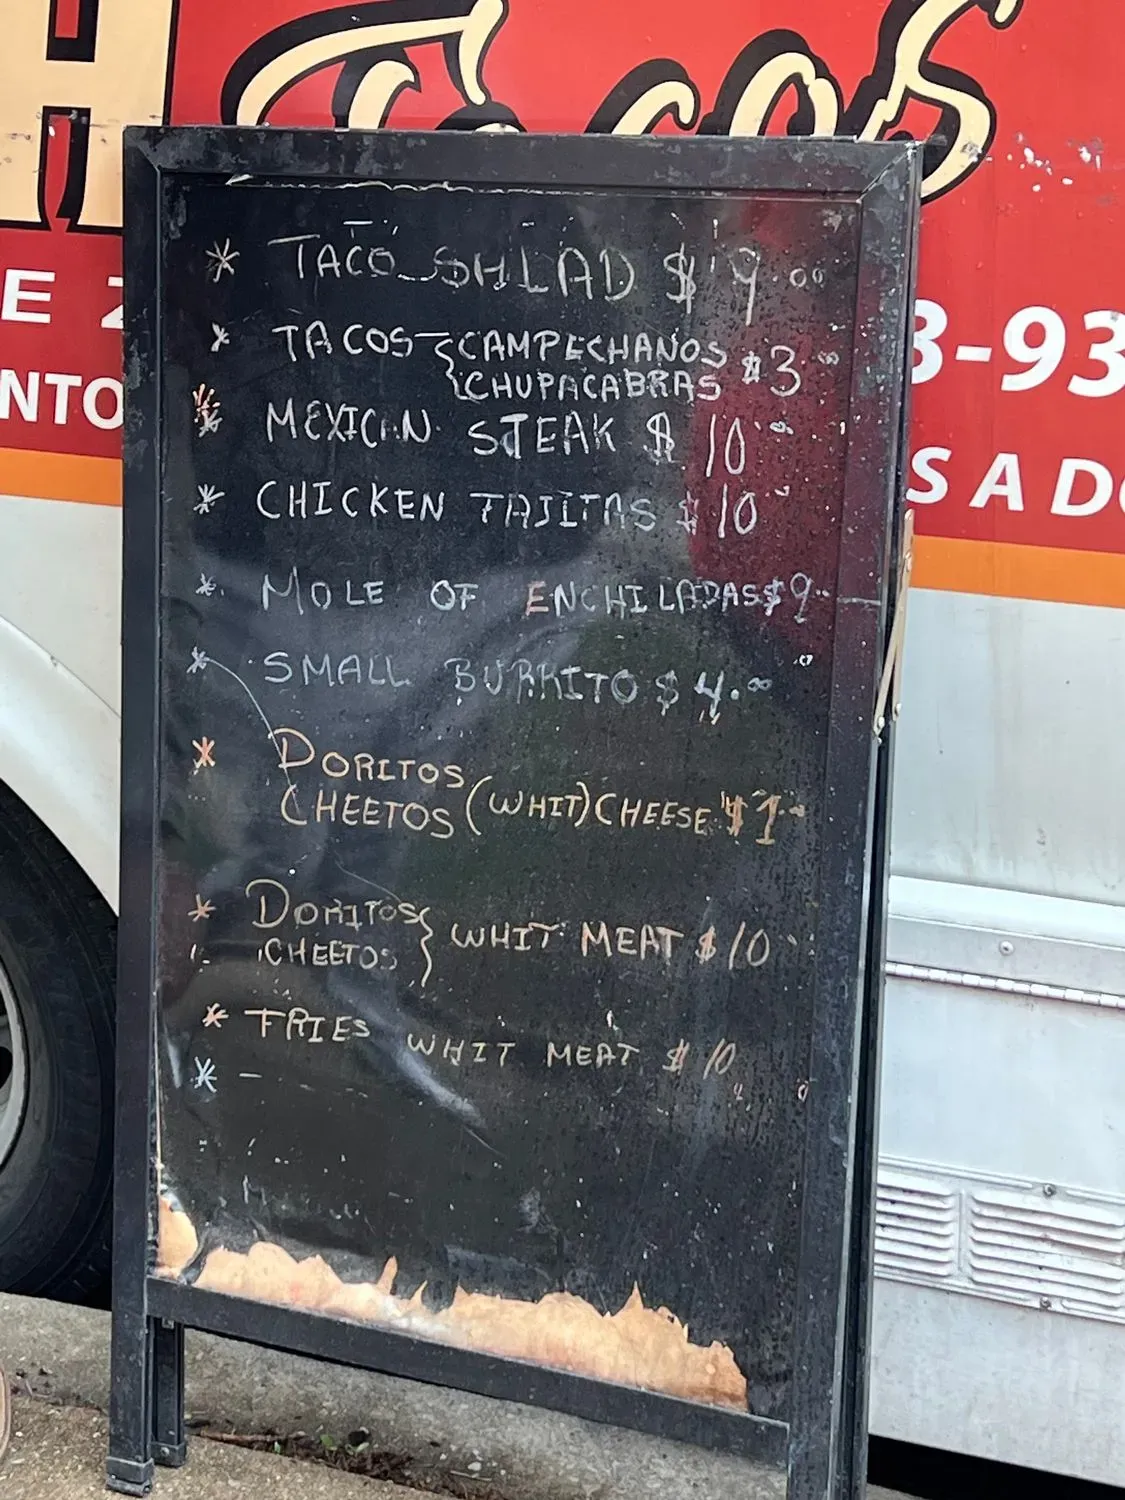 Tacos
E 2
3-93
NTO
SADO
* TACO SALAD $9.00
* TACOS { CAMPECHANOS $3.00
CHUPACABRAS
* MEXICAN STEAK $10.00
* CHICKEN TAJITAS $10
* MOLE OF ENCHILADAS $9
* SMALL BURRITO $4.00
* DORITOS
CHEETOS (WHIT) CHEESE $7
* DORITOS } WHIT MEAT $10
CHEETOS
* FRIES WHIT MEAT $10
*